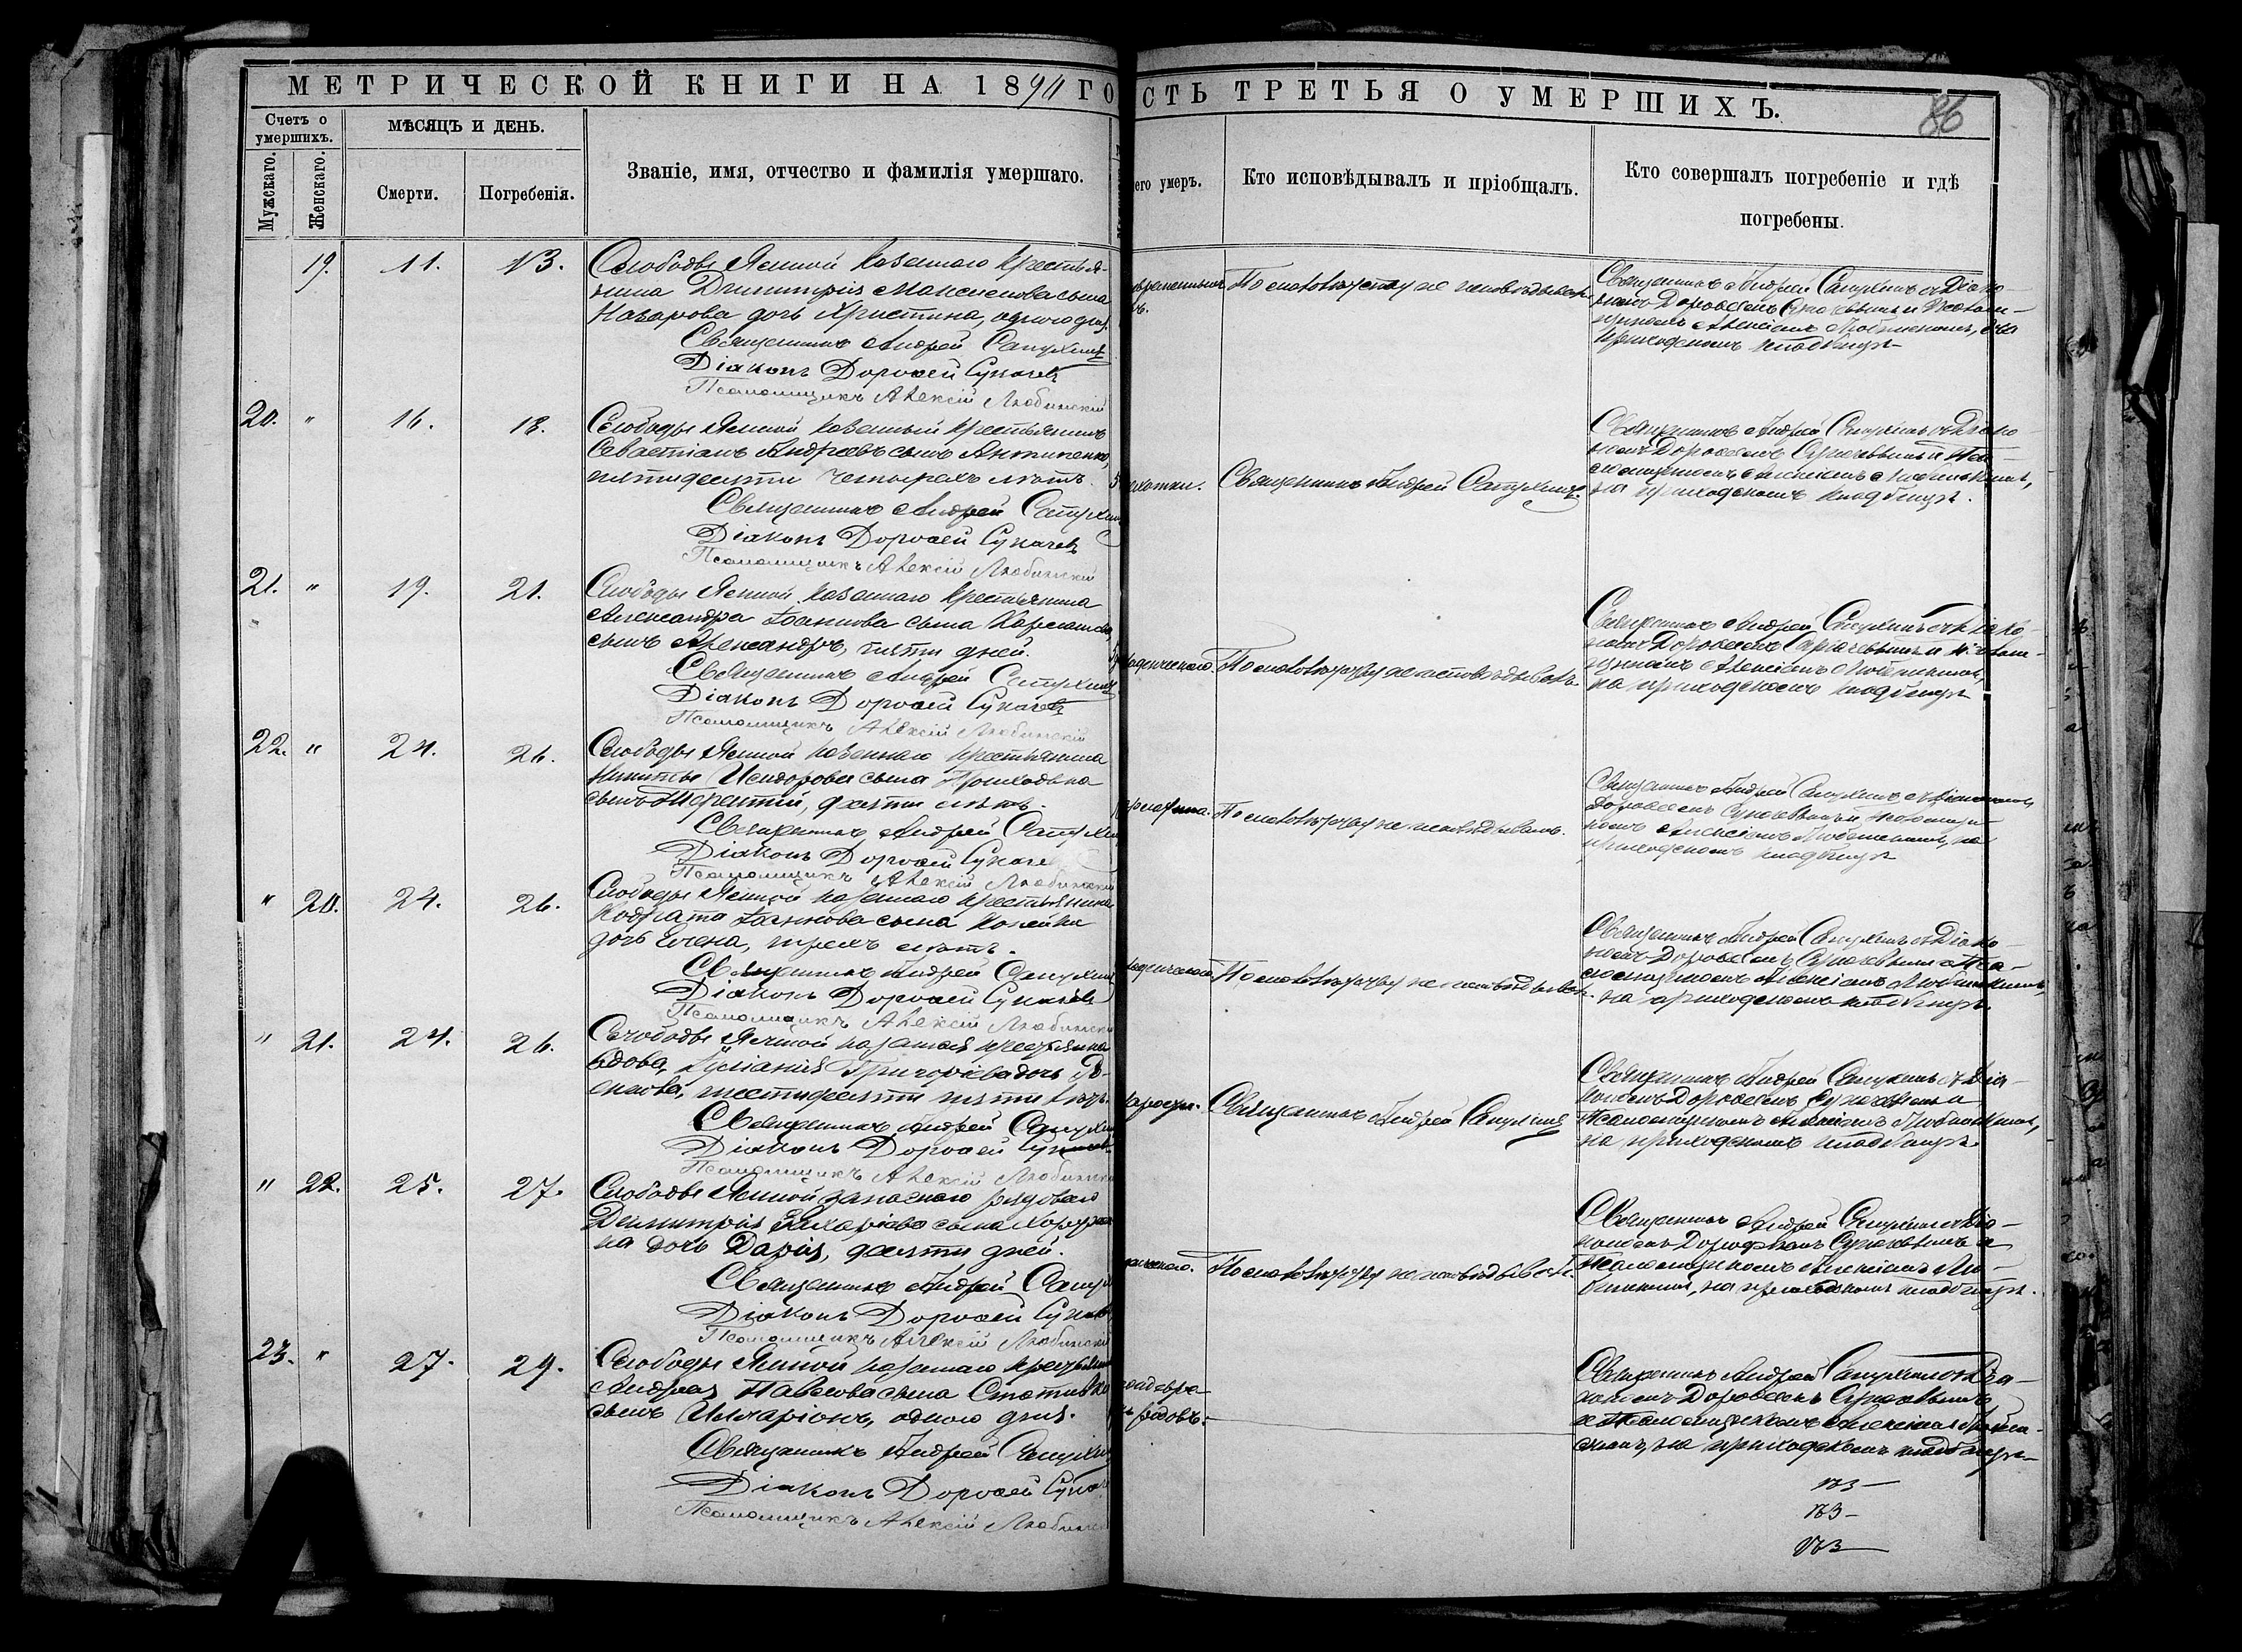 МЕТРИЧЕСКОЙ КНИГИ НА 1894 ГО
СТЬ ТРЕТЬЯ О УМЕРШИХЪ.
86
Счетъ о умершихъ.
Мужскаго.
Женскаго.
МѢСЯЦЪ И ДЕНЬ.
Смерти.
Погребенія.
Званіе, имя, отчество и фамилія умершаго.
его умеръ.
Кто исповѣдывалъ и пріобщалъ.
Кто совершалъ погребеніе и гдѣ
погребены.
19. 11. 13. Слободы Ясиной казеннаго крестья-
нина Димитрія сына
Назарова дочь Христина, одного дня.
Священникъ Андрей Сапухинъ
Діаконъ Дороѳей Сукачевъ
Псаломщикъ Алексій Любинскій
По маловозрастію не исповѣдыванъ
Священникъ Андрей Сапухинъ съ Діако-
номъ Дороѳеемъ Сукачевымъ и Псалом-
щикомъ Алексіемъ Любинскимъ, на
приходскомъ кладбищѣ
20. " 16. 18. Слободы Ясиной казенный крестьянинъ
Севастіанъ Андреевъ сынъ Антипенко,
пятидесяти четырехъ лѣтъ.
Священникъ Андрей Сапухин
Діаконъ Дороѳей Сукачевъ
Псаломщикъ Алексій Любинскій
чахотки.
Священникъ Андрей Сапухинъ.
Священникъ Андрей Сапухинъ съ Діако-
номъ Дороѳеемъ Сукачевымъ и Пса-
ломщикомъ Алексіемъ Любинскимъ,
на приходскомъ кладбищѣ.
21. " 19. 21. Слободы Ясиной казеннаго крестьянина
Александра Іоаннова сына
сынъ Александръ, пяти дней.
Священникъ Андрей Сапухинъ
Діаконъ Дороѳей Сукачевъ
Псаломщикъ Алексій Любинскій
По маловозрастію не исповѣдыванъ.
Священникъ Андрей Сапухинъ съ Діако-
номъ Дороѳеемъ Сукачевымъ и Псалом-
щикомъ Алексіемъ Любинскимъ,
на приходскомъ кладбищѣ
22. " 24. 26. Слободы Ясиной казеннаго крестьянина
Никиты Исидорова сына Приходька
сынъ Терентій, лѣтъ.
Священникъ Андрей Сапухи
Діаконъ Дороѳей Сукаче
Псаломщикъ Алексій Любинскій
По маловозрастію не исповѣдыванъ.
Священникъ Андрей Сапухинъ съ Діакономъ
Дороѳеемъ Сукачевымъ и Псаломщи-
комъ Алексіемъ Любинскимъ, на
приходскомъ кладбищѣ
" 20. 24. 26. Слободы Ясиной казеннаго крестьянина
Кодрата Іоаннова сына Копейки
дочь Елена, трехъ лѣтъ.
Священникъ Андрей Сапухин
Діаконъ Дороѳей Сукачевъ
Псаломщикъ Алексій Любинскі
По маловозрастію не исповѣдыван.
Священникъ Андрей Сапухинъ съ Діако-
номъ Дороѳеемъ Сукачевымъ и Пса-
ломщикомъ Алексіемъ Любинскимъ,
на приходскомъ кладбищѣ.
" 21. 24. 26. Слободы Ясиной казенная крестьянка
вдова, Іуліанія Григоріева дочь
шестидесяти пяти лѣтъ.
Священникъ Андрей Сапухи
Діаконъ Дороѳей Сукачевъ
Псаломщикъ Алексій Любински
Священникъ Андрей Сапухинъ
Священникъ Андрей Сапухинъ съ Діа-
кономъ Дороѳеемъ Сукачевымъ и
Псаломщикомъ Алексіемъ Любинскимъ,
на приходскомъ кладбищѣ.
" 22. 25. 27. Слободы Ясиной запаснаго рядоваго
Димитрія Захаріева сына
на дочь Дарія, дней.
Священникъ Андрей Сапух
Діаконъ Дороѳей Сукаче
Псаломщикъ Алексій Любинскі
По маловозрастію не исповѣдыван.
Священникъ Андрей Сапухинъ съ Діа-
кономъ Дороѳеемъ Сукачевымъ и
Псаломщикомъ Алексіемъ Лю-
бинскимъ, на приходскомъ кладбищѣ.
23. " 27. 29. Слободы Ясиной казеннаго крестьянина
Андрея Павлова сына
сынъ Иларіонъ, одного дня.
Священникъ Андрей Сапухин
Діаконъ Дороѳей Сукаче
Псаломщикъ Алексій Любинск
родовъ.
Священникъ Андрей Сапухинъ съ Діа-
кономъ Дороѳеемъ Сукачевымъ
и Псаломщикомъ Алексіемъ Любин-
скимъ, на приходскомъ кладбищѣ